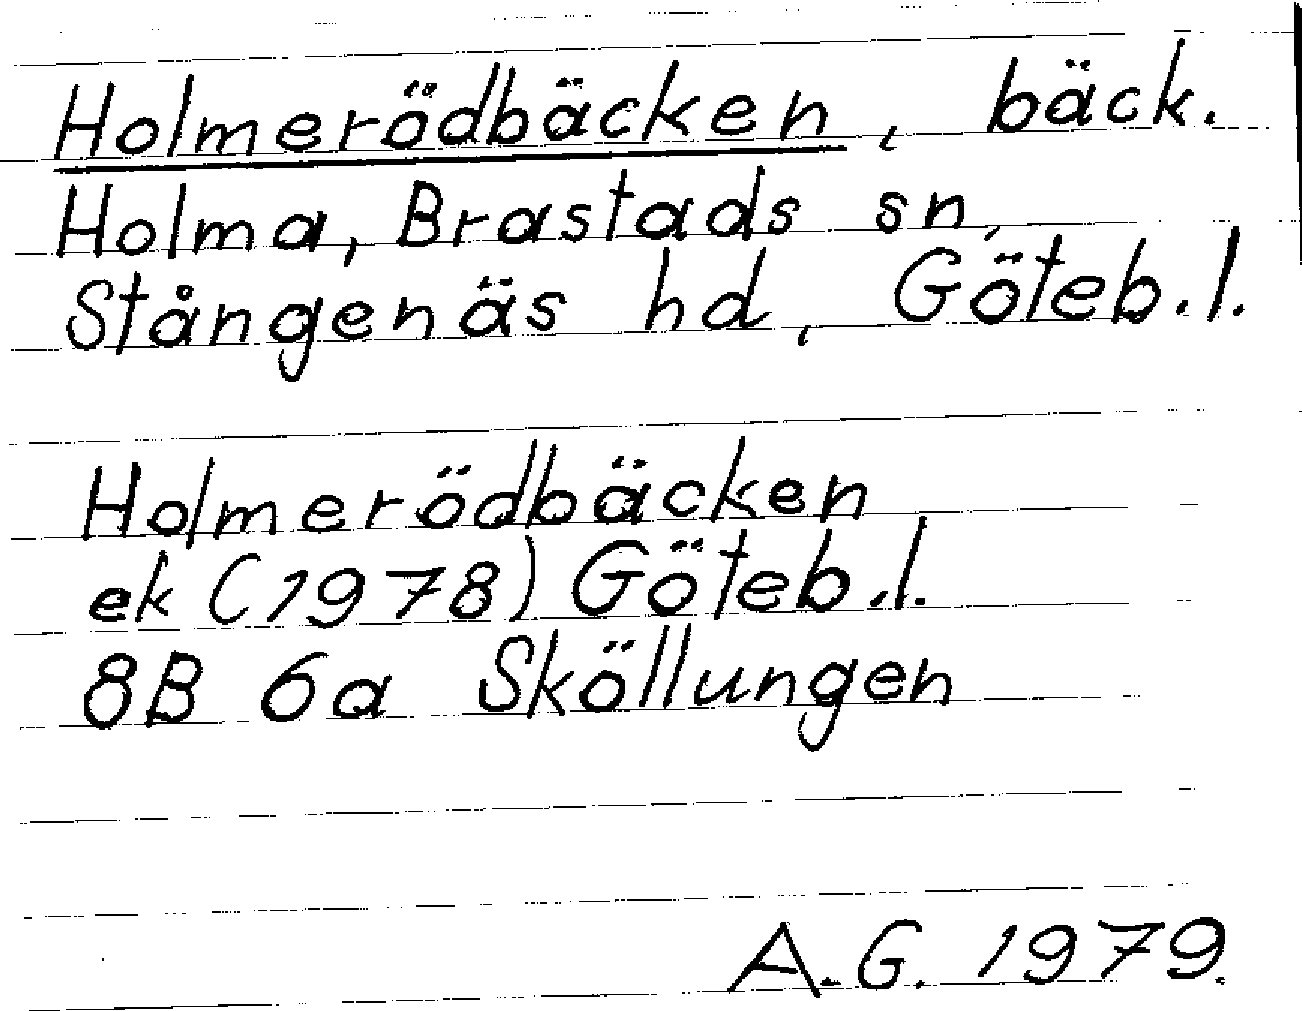 Holmerödbäcken, bäck.
Holma, Brastads sn,
Stångenäs hd, Göteb.l.
Holmerödbäcken
ek (1978) Göteb.l.
8B 6a Sköllungen
A.G. 1979.